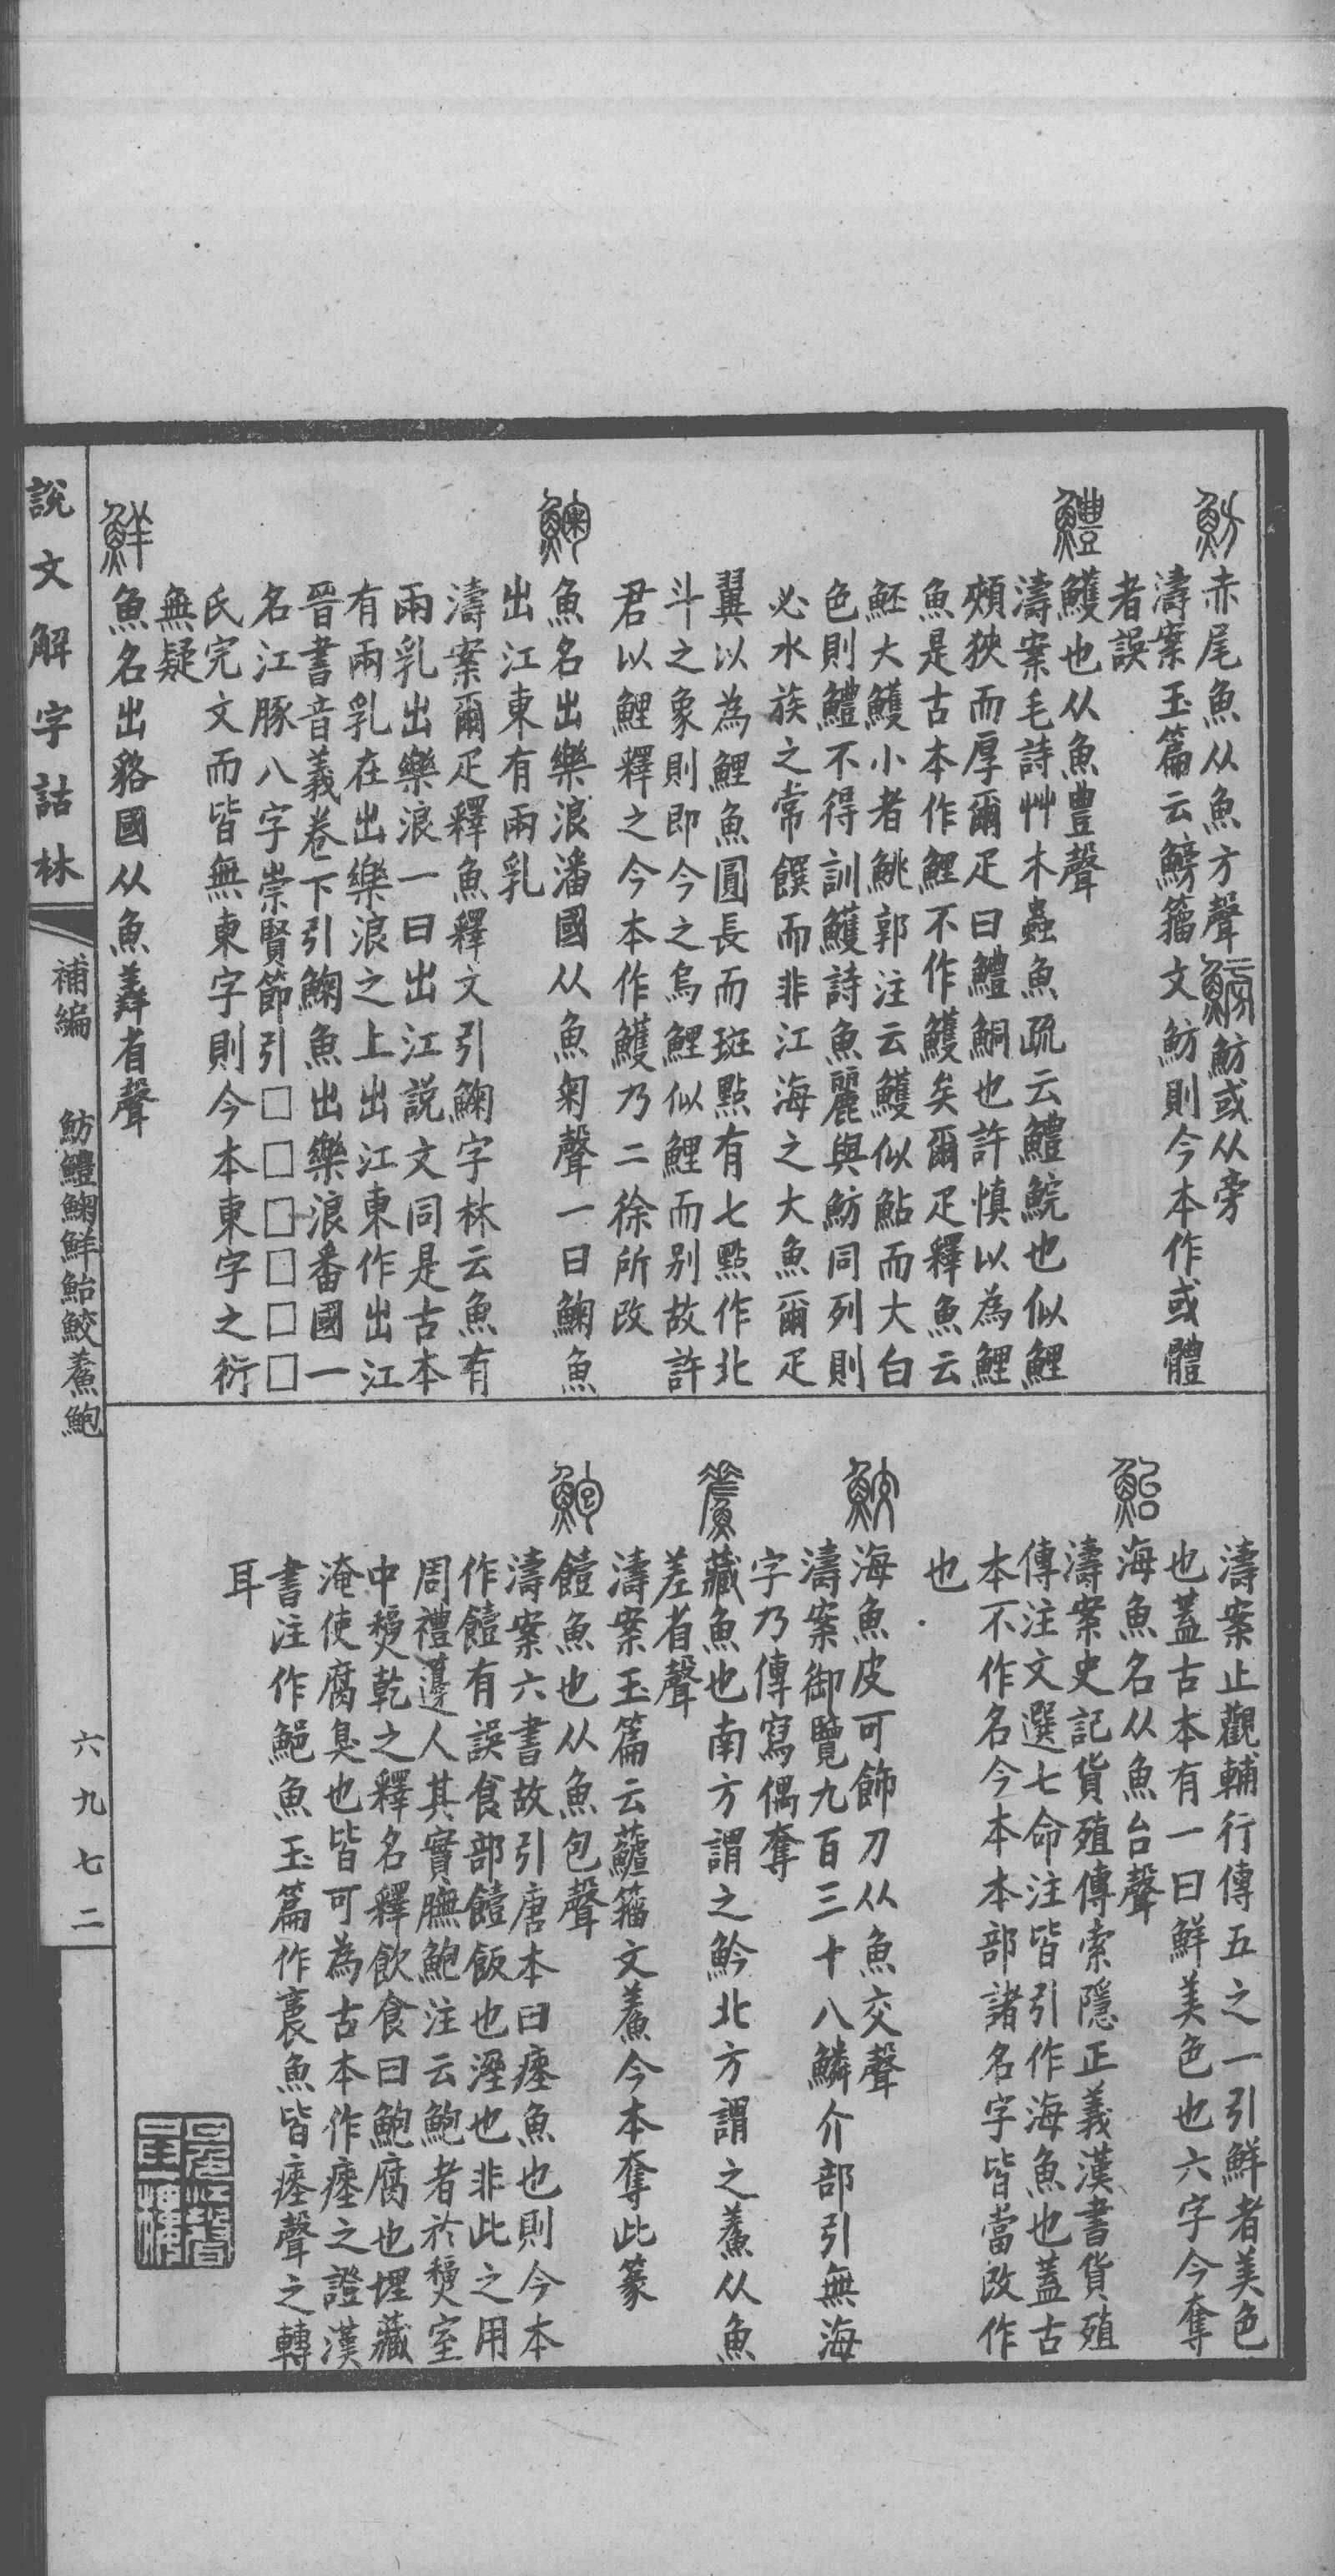 魴赤尾魚从魚方聲鰟魴或从旁
濤案玉篇云鰟籀文魴則今本作或體
者誤
鱧鱯也从魚豊聲
濤案毛詩艸木蟲魚疏云鱧鯇也似鯉
頰狹而厚爾疋曰鱧鮦也許慎以為鯉
魚是古本作鯉不作鱯矣爾疋釋魚云
魾大鱯小者鮡郭注云鱯似鮎而大白
色則鱧不得訓鱯詩魚麗與魴同列則
必水族之常饌而非江海之大魚爾疋
翼以為鯉魚圓長而斑點有七點作北
斗之象則即今之烏鯉似鯉而別故許
君以鯉釋之今本作鱯乃二徐所改
䱡魚名出樂浪潘國从魚匊聲一曰䱡魚
出江東有兩乳
濤案爾疋釋魚釋文引䱡字林云魚有
兩乳出樂浪一曰出江說文同是古本
有兩乳在出樂浪之上出江東作出江
晉書音義卷下引䱡魚出樂浪番國一
名江豚八字崇賢節引□□□□□□
氏完文而皆無東字則今本東字之衍
無疑
鮮魚名出貉國从魚羴省聲
濤案止觀輔行傳五之一引鮮者美色
也蓋古本有一曰鮮美色也六字今奪
鮐海魚名从魚台聲
濤案史記貨殖傳索隱正義漢書貨殖
傳注文選七命注皆引作海魚也蓋古
本不作名今本本部諸名字皆當改作
也
鮫海魚皮可飾刀从魚交聲
濤案御覽九百三十八鱗介部引無海
字乃傳寫偶奪
鮺藏魚也南方謂之䰼北方謂之鮺从魚
差省聲
濤案玉篇云䱹籀文鮺今本奪此篆
鮑饐魚也从魚包聲
濤案六書故引唐本曰瘞魚也則今本
作饐有誤食部饐飯也溼也非此之用
周禮籩人其實膴鮑注云鮑者於䊩室
中䊩乾之釋名釋飲食曰鮑腐也埋藏
淹使腐臭也皆可為古本作瘞之證漢
書注作鮑魚玉篇作裛魚皆瘞聲之轉
耳
說文解字詁林
補編 魴鱧䱡鮮鮐鮫鮺鮑
六九七二